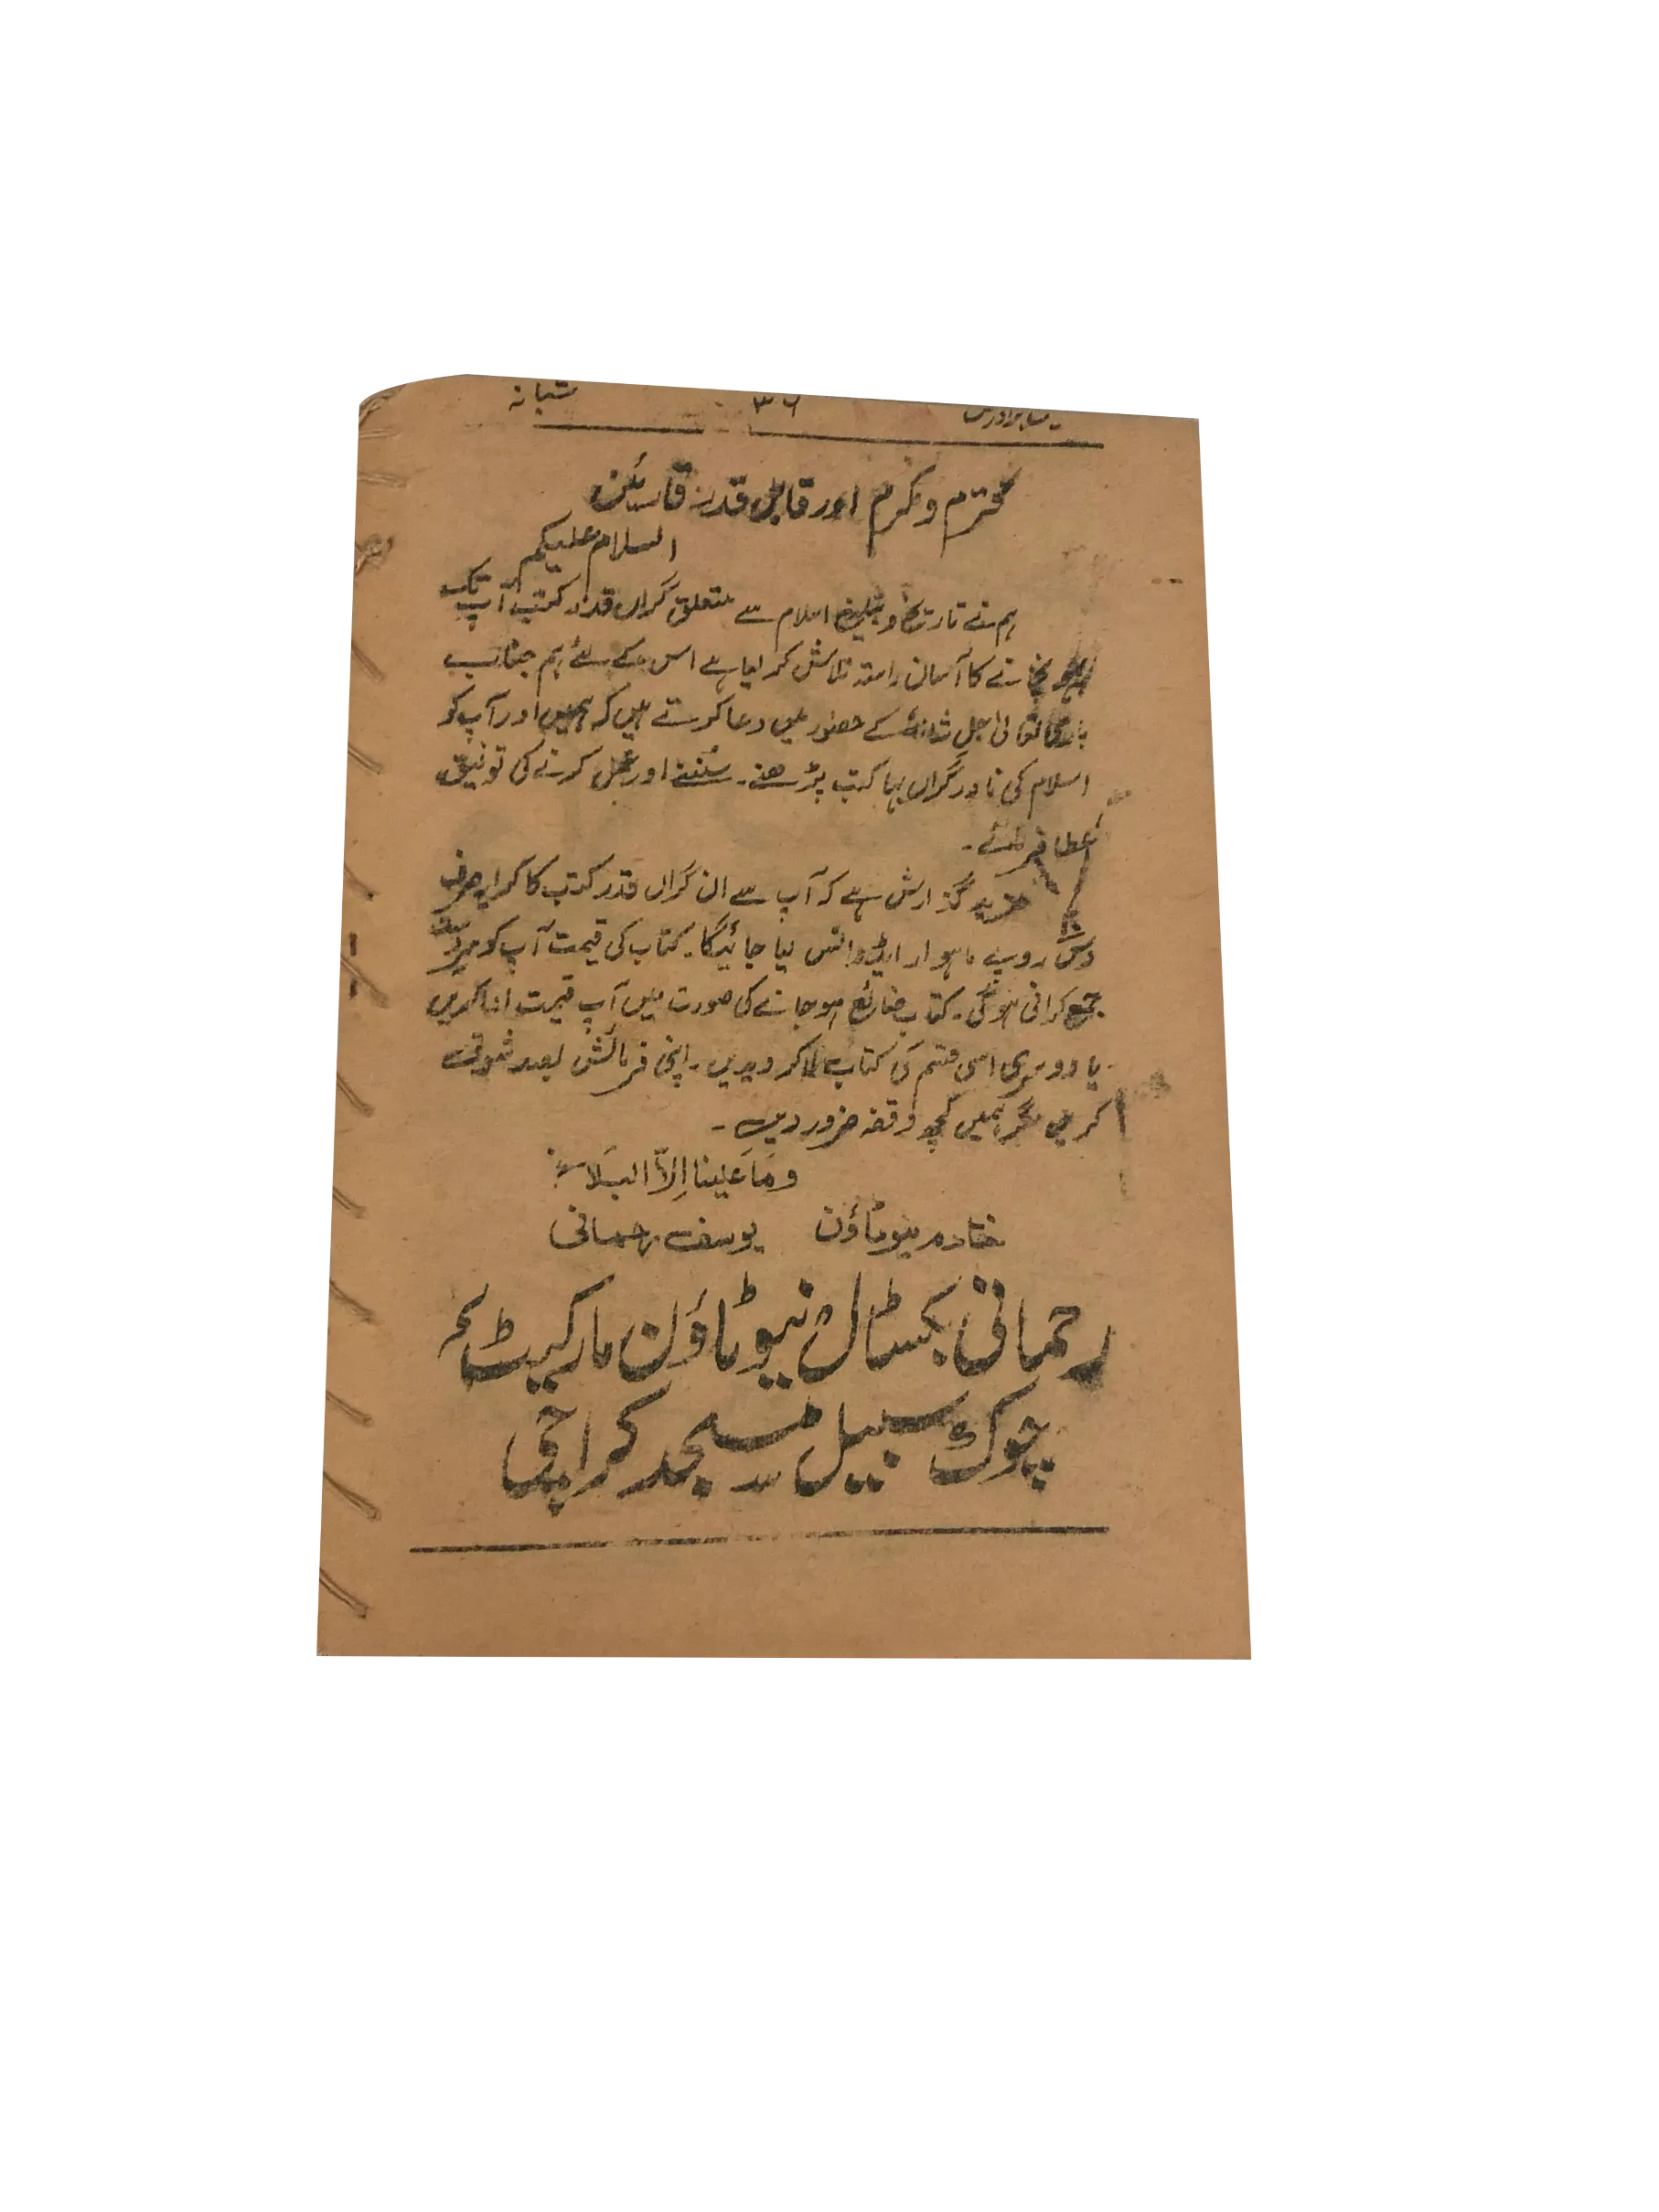 شبانہ ۳۶
محترم و مکرم اور قابل قدر قارئین
السلام علیکم
ہم نے تاریخ و تبلیغ اسلام سے متعلق گراں قدر کتب آپ تک
پہنچانے کا آسان راستہ تلاش کر لیا ہے اس کے لئے ہم جناب
باری تعالیٰ اجل شانہٗ کے حضور میں دعا کرتے ہیں کہ ہمیں اور آپ کو
اسلام کی نادر گراں بہا کتب پڑھنے۔ سُننے اور عمل کرنے کی توفیق
عطا فرمائے۔
مزید گزارش ہے کہ آپ سے ان گراں قدر کتب کا کرایہ صرف
دس روپے ماہوار ایڈوانس لیا جائیگا۔ کتاب کی قیمت آپ کو
جمع کرانی ہوگی۔ کتاب ضائع ہو جانے کی صورت میں آپ قیمت ادا کریں
یا دوسری اسی قسم کی کتاب لا کر دیدیں۔ اپنی فرمائش بصد شوق
کریں مگر ہمیں کچھ وقفہ ضرور دیں۔
وَمَا عَلینا اِلاّ البَلاغ
خادم نیو ٹاؤن یوسف رحمانی
رحمانی بکسٹال نیو ٹاؤن مارکیٹ
چوک سبیل مسجد کراچی